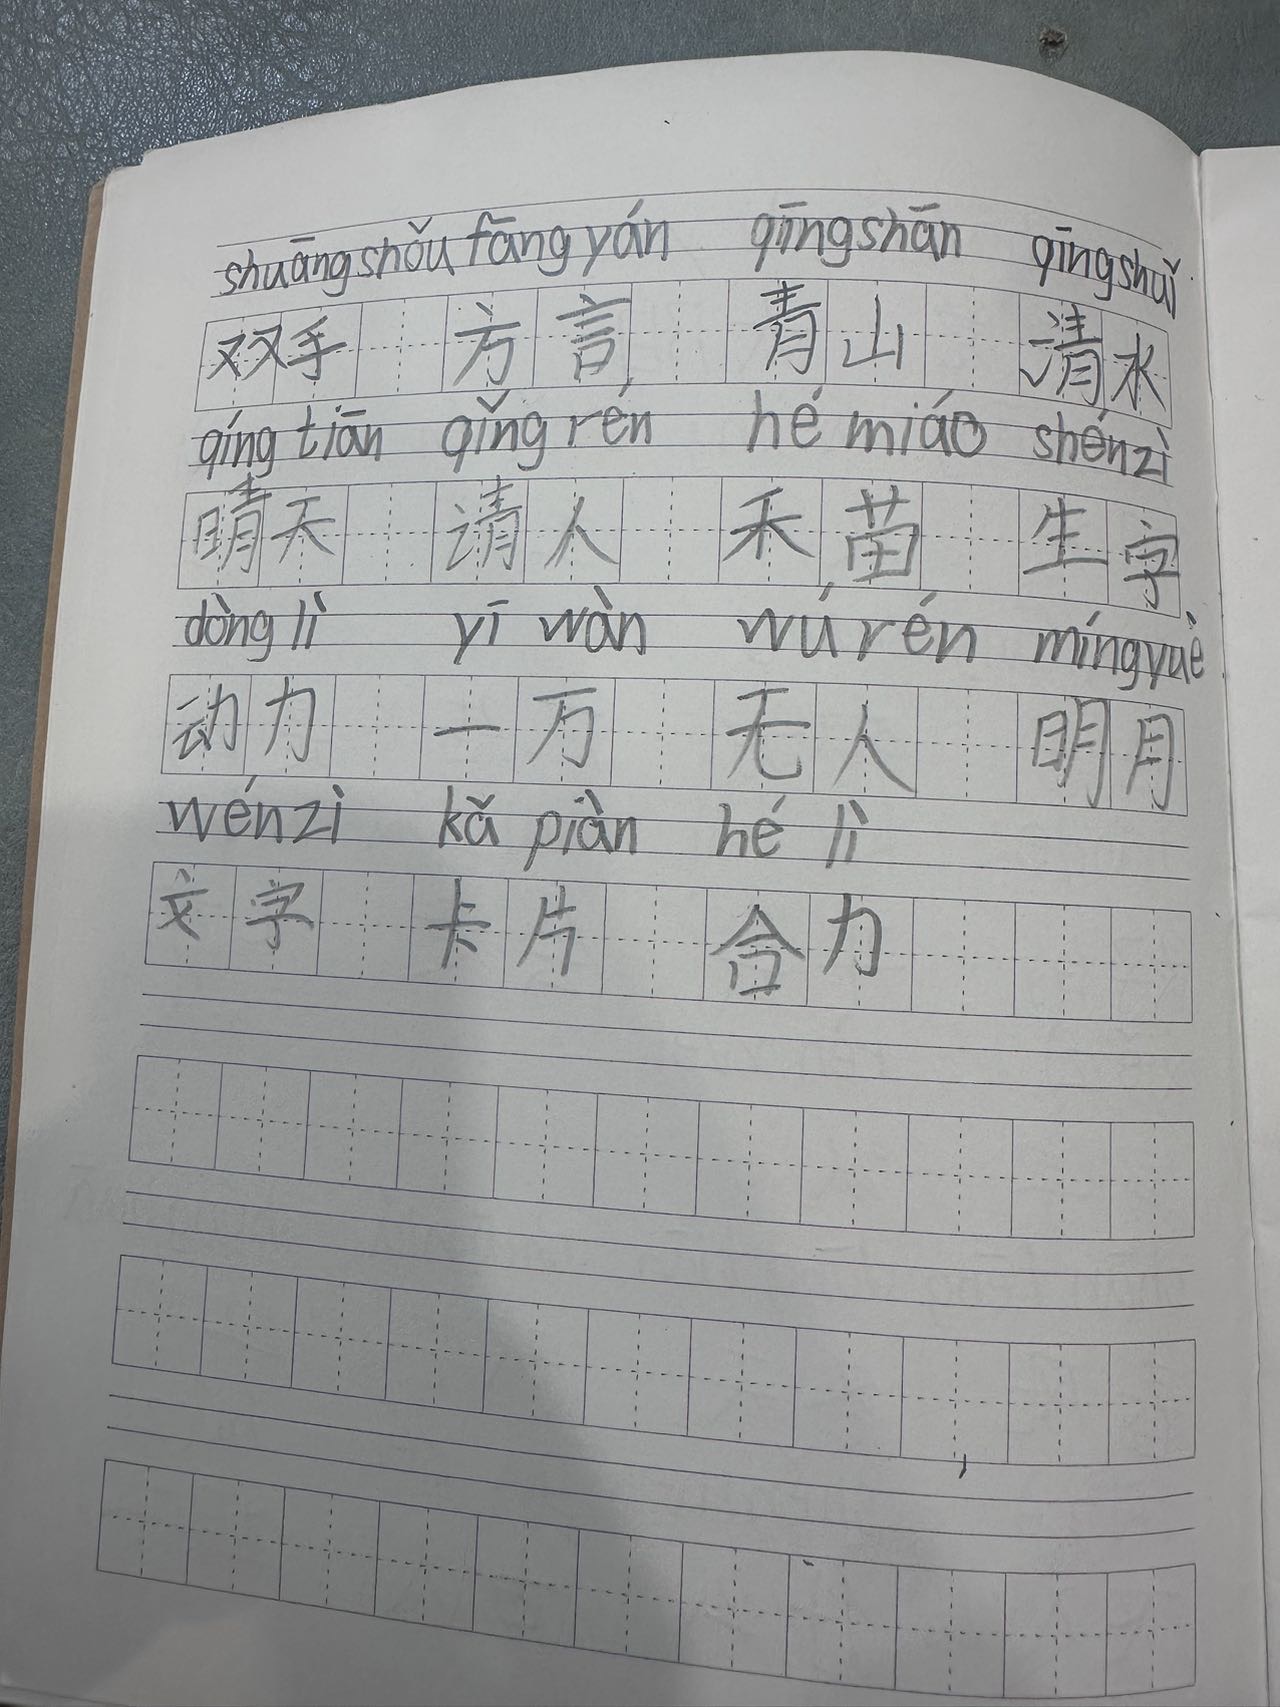 shuāng shǒu fāng yán qīng shān qīng shuǐ
双手 方言 青山 清水
qíng tiān qǐng rén hé miáo shén zì
晴天 请人 禾苗 生字
dòng lì yī wàn wú rén míng yuè
动力 一万 无人 明月
wén zì kǎ piàn hé lì
文字 卡片 合力